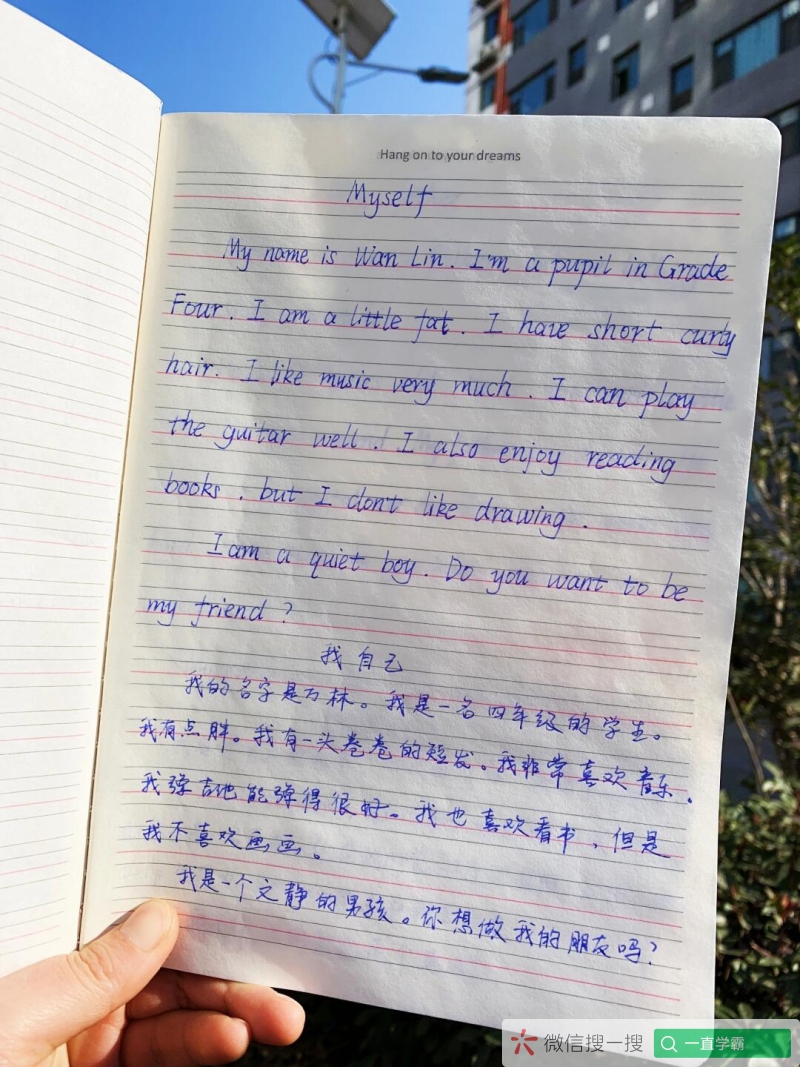 Hang on to your dreams
Myself
My name is Wan Lin. I'm a pupil in Grade
Four. I am a little fat. I have short curly
hair. I like music very much. I can play
the guitar well. I also enjoy reading
books, but I don't like drawing.
I am a quiet boy. Do you want to be
my friend?
我自己
我的名字是万林。我是一名四年级的学生。
我有点胖。我有一头卷卷的短发。我非常喜欢音乐.
我弹吉他能弹得很好。我也喜欢看书,但是
我不喜欢画画。
我是一个文静的男孩。你想做我的朋友吗?
微信搜一搜 一直学霸